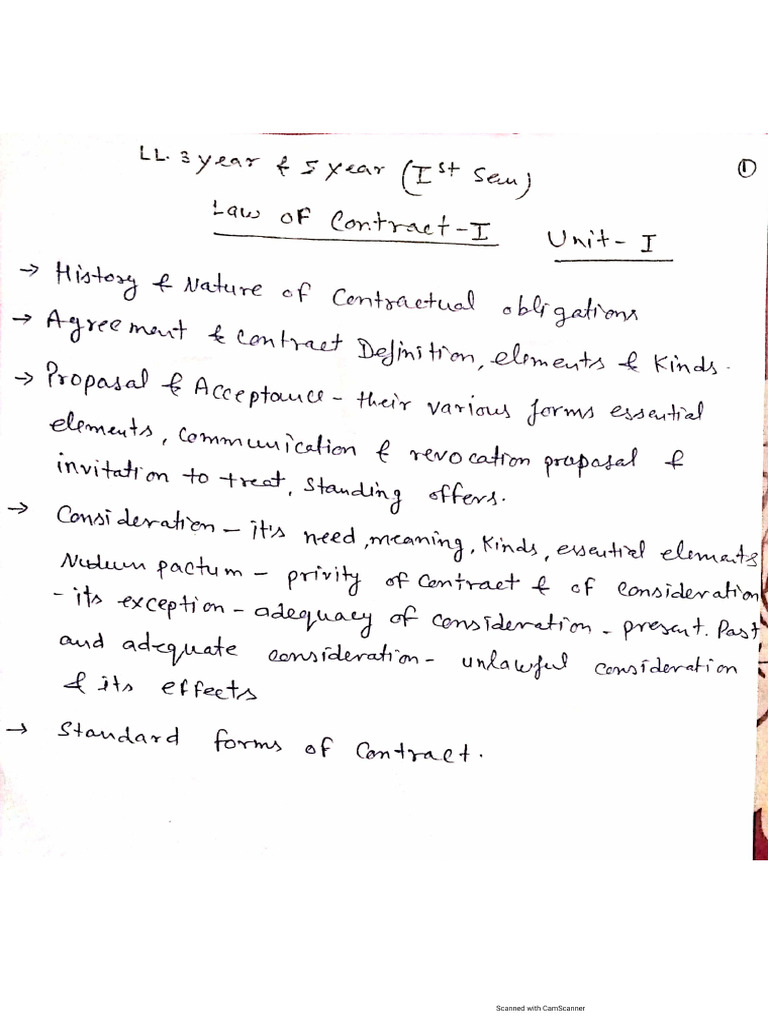 LL. 3 year & 5 year (Ist Sem)
①
Law of Contract-I Unit-I
→ History & Nature of Contractual obligations
→ Agreement & Contract Definition, elements & Kinds.
→ Proposal & Acceptance - their various forms essential
elements, communication & revocation proposal &
invitation to treat, standing offers.
→ Consideration - it's need, meaning, Kinds, essential elements
Nudum pactum - privity of contract & of consideration
- its exception - adequacy of consideration - present. Past
and adequate consideration - unlawful consideration
& its effects
→ Standard forms of Contract.
Scanned with CamScanner